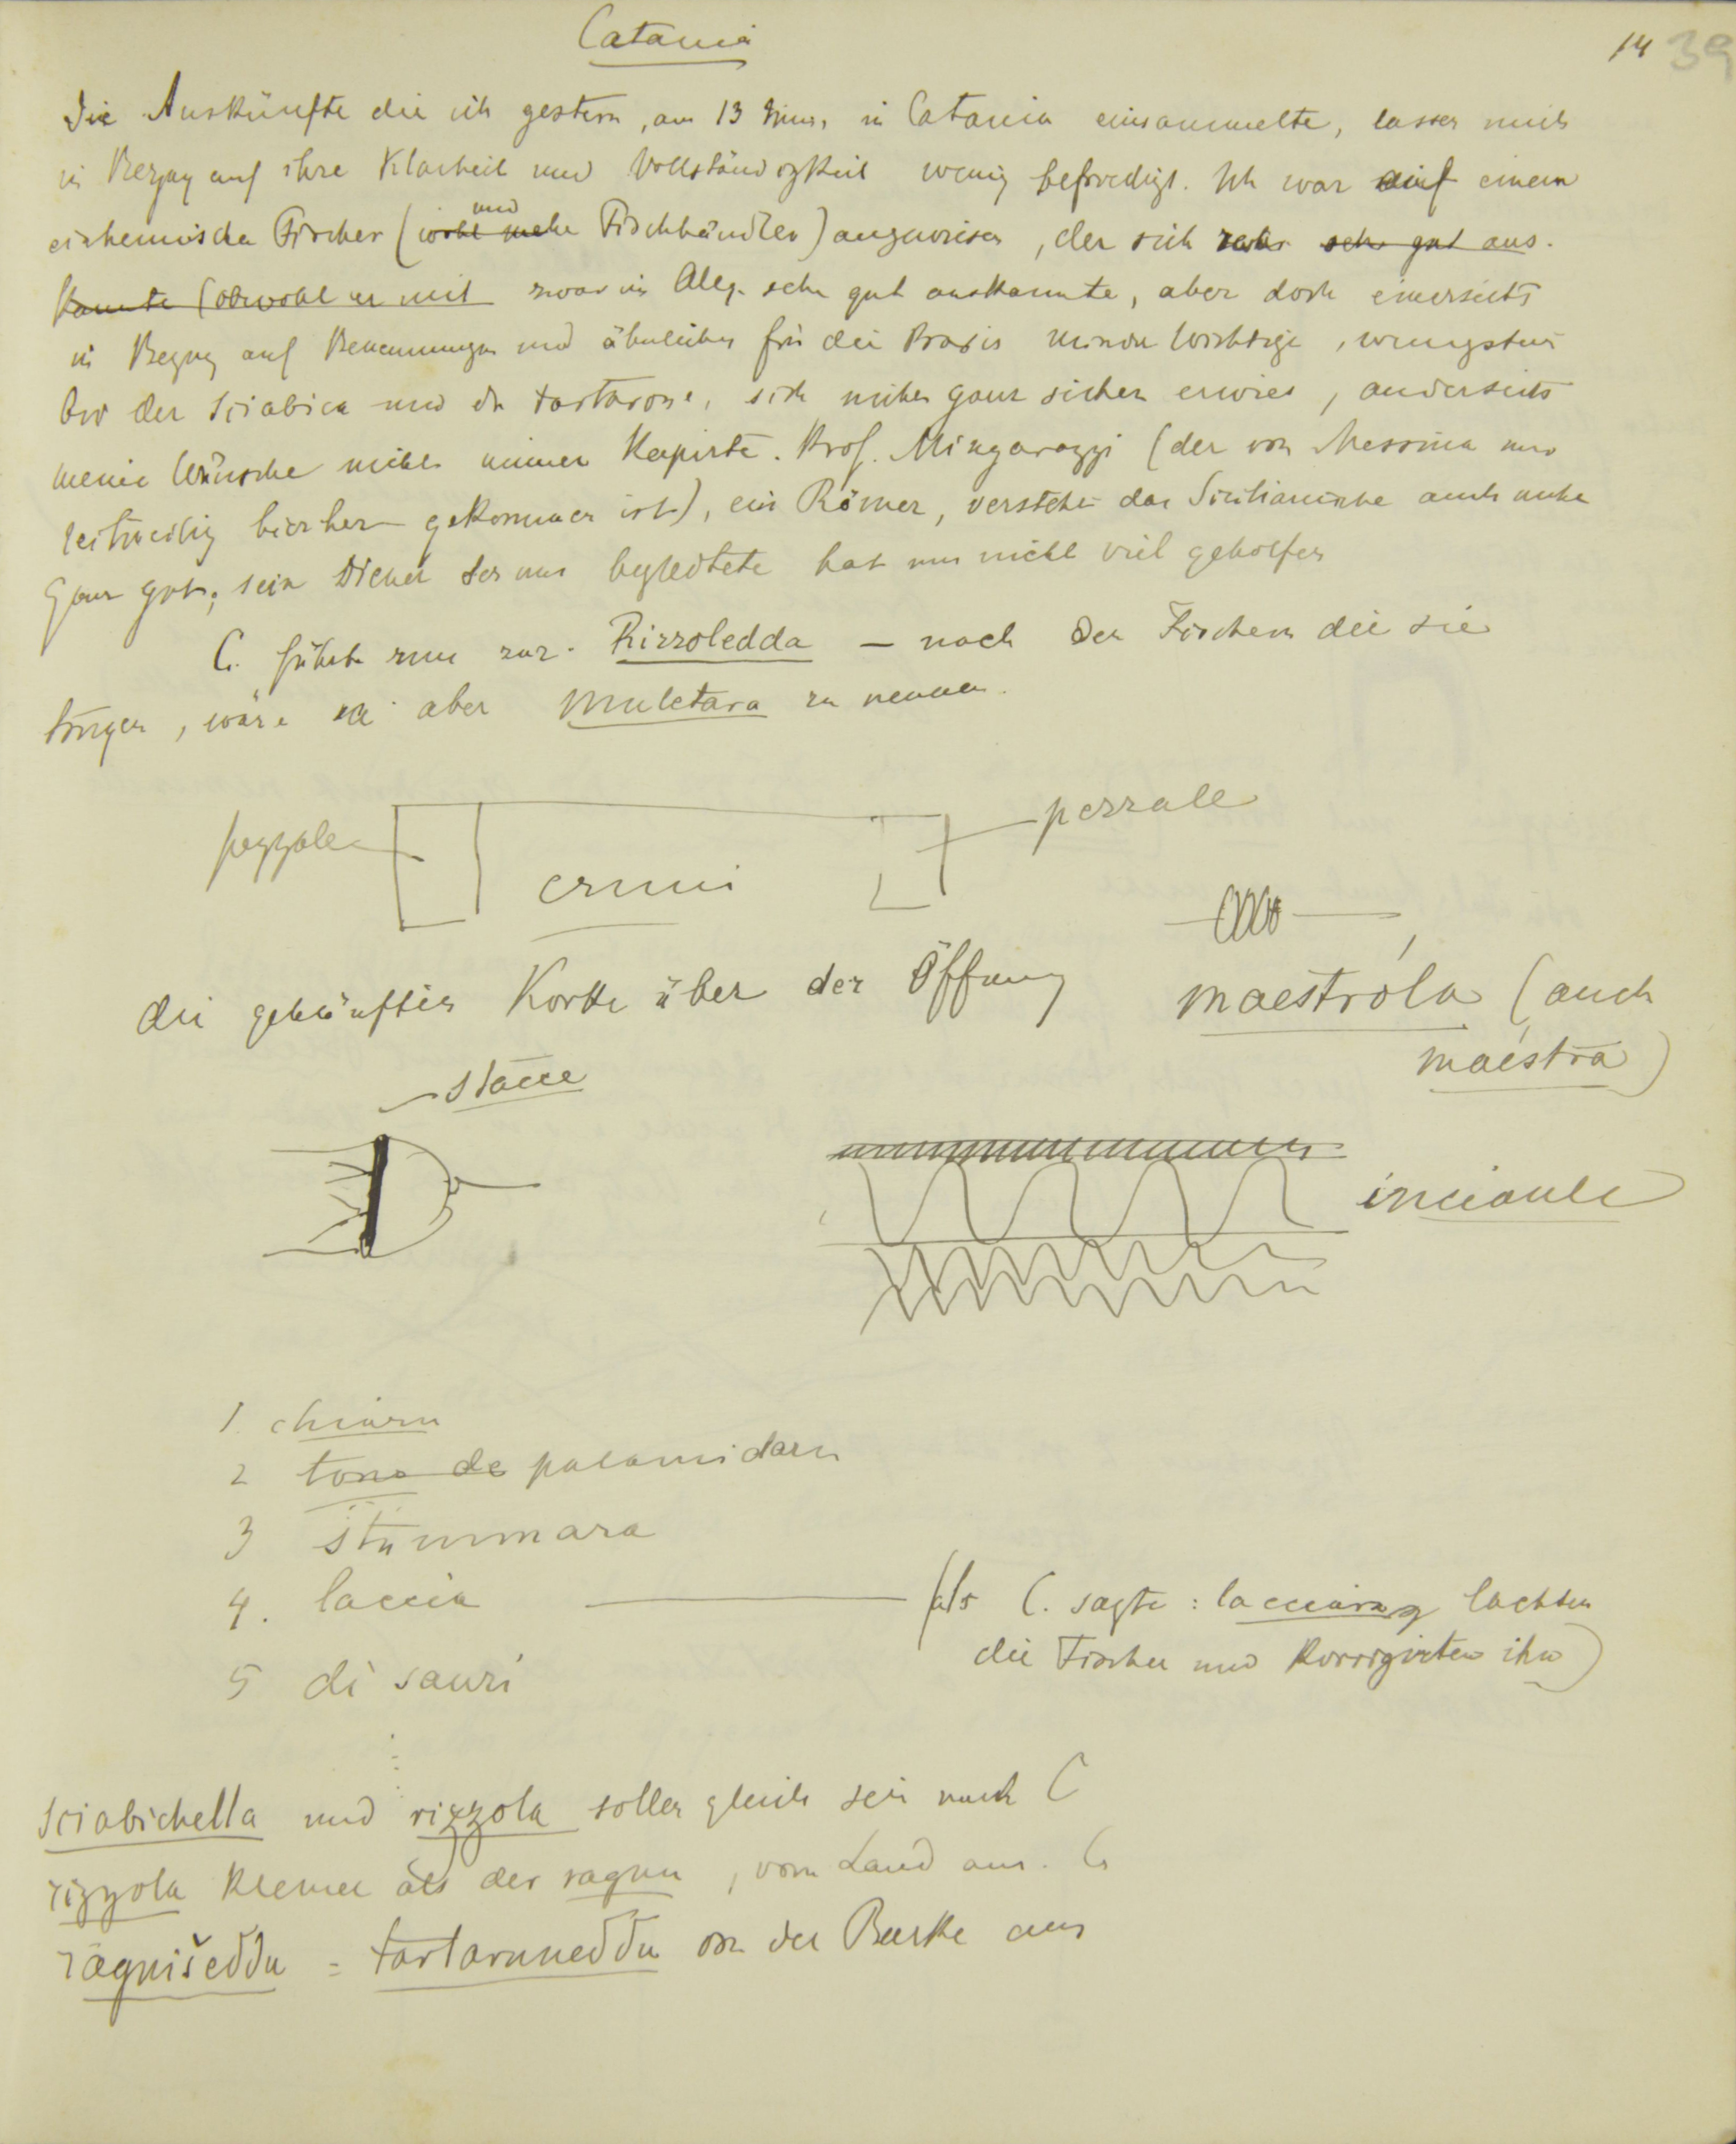 Catania
14 39
Die Auskünfte die ich gestern, am 13 in Catania einsammelte, lassen mich
in Bezug auf ihre Klarheit und Vollständigkeit wenig befriedigt. Ich war auf einen
einheimischen Fischer (wohl mehr und Fischhändler) angewiesen, der sich sehr gut aus-
kannte (obwohl er mit zwar im Allg. sehr gut auskannte, aber doch einerseits
in Bezug auf Benennungen und ähnliches für die Praxis minder Wichtige, wenigstens
bei der Sciabica und der tartarone, sich nicht ganz sicher erwies, anderseits
meine Wünsche nicht immer kapirte. Prof. Mingazzi (der von Messina nur
zeitweilig hierher gekommen ist), ein Römer, versteht das Sicilianische auch nicht
ganz gut; sein Diener der uns begleitete hat uns nicht viel geholfen
C. führte mich zur Rizzoledda – nach den Fischern die sie
bringen, wäre sie aber muletara zu nennen.
pezzale
pezzale
cruni
die gehäuften Korke über der Öffnung
maestróla (auch
maéstra)
stacce
inciaule
1. chiaru
2 tono de palamidaru
3 stummara
4. laccia
(als C. sagte: lacciara lachten
die Fischer und korrigirten ihn)
5 di sauri
sciabichella und rizzola sollen gleich sein nach C
rizzola kleiner als der ragnu, vom Land aus. C.
ragnišeddu = tartaruneddu von der Barke aus